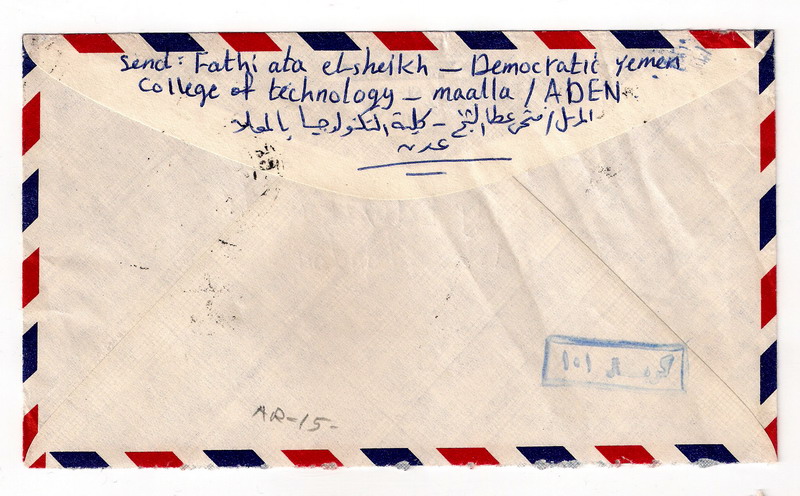 Send: Fathi ata el-sheikh — Democratic yemen
College of technology — maalla / ADEN
المرسل / فتحي عطا الشيخ — كلية التكنولوجيا بالمعلا
عدن
AR-15-